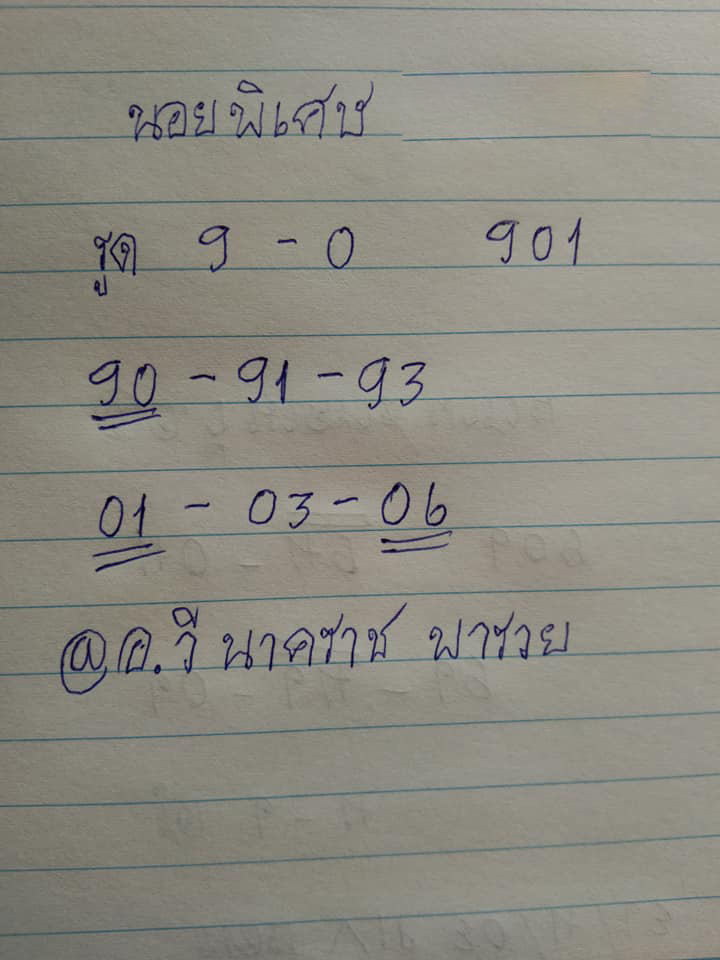 นอยพิเศษ
ชุด 9 - 0 901
90 - 91 - 93
01 - 03 - 06
@อ.วี นาคราช พารวย